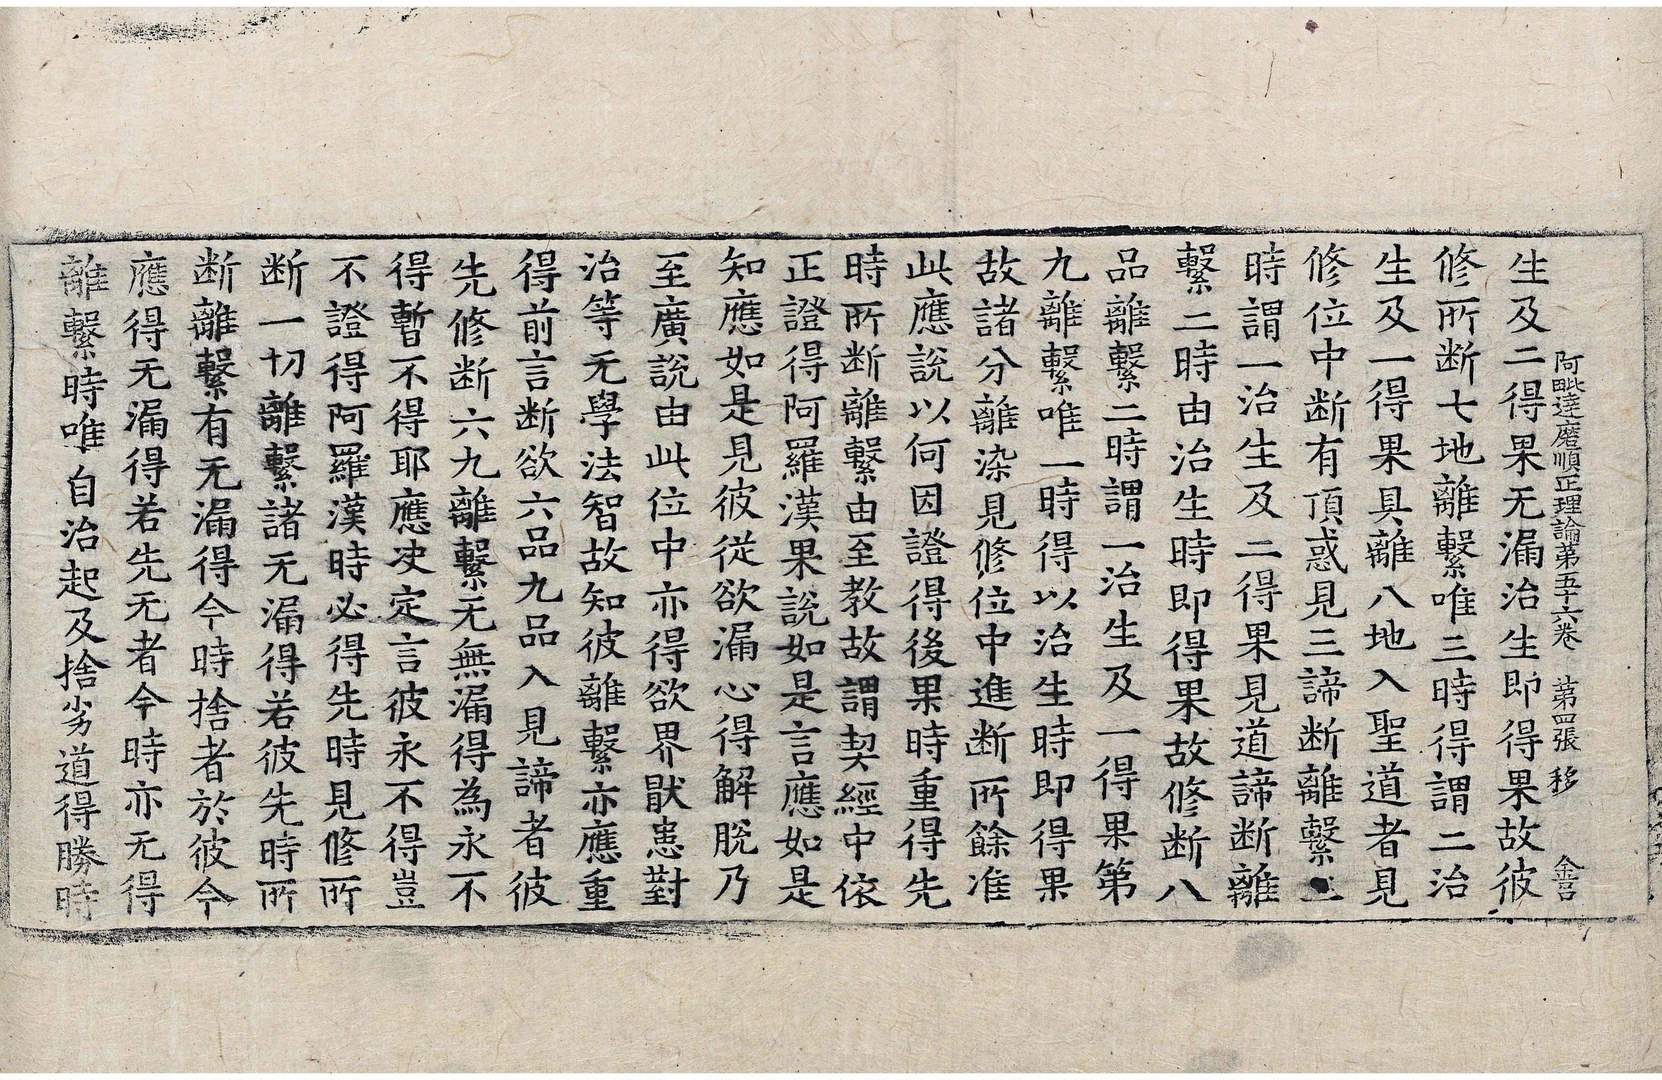 阿毗達磨順正理論第五十六卷 第四張 移 金呂
生及二得果无漏治生即得果故彼
修所断七地離繫唯三時得謂二治
生及一得果具離八地入聖道者見
修位中断有頂惑見三諦断離繫二
時謂一治生及二得果見道諦断離
繫二時由治生時即得果故修断八
品離繫二時謂一治生及一得果第
九離繫唯一時得以治生時即得果
故諸分離染見修位中進断所餘准
此應說以何因證得後果時重得先
時所断離繫由至教故謂契經中依
正證得阿羅漢果說如是言應如是
知應如是見彼從欲漏心得解脫乃
至廣說由此位中亦得欲界猒患對
治等无學法智故知彼離繫亦應重
得前言断欲六品九品入見諦者彼
先修断六九離繫无無漏得為永不
得暫不得耶應决定言彼永不得豈
不證得阿羅漢時必得先時見修所
断一切離繫諸无漏得若彼先時所
断離繫有无漏得今時捨者於彼今
應得无漏得若先无者今時亦无得
離繫時唯自治起及捨劣道得勝時